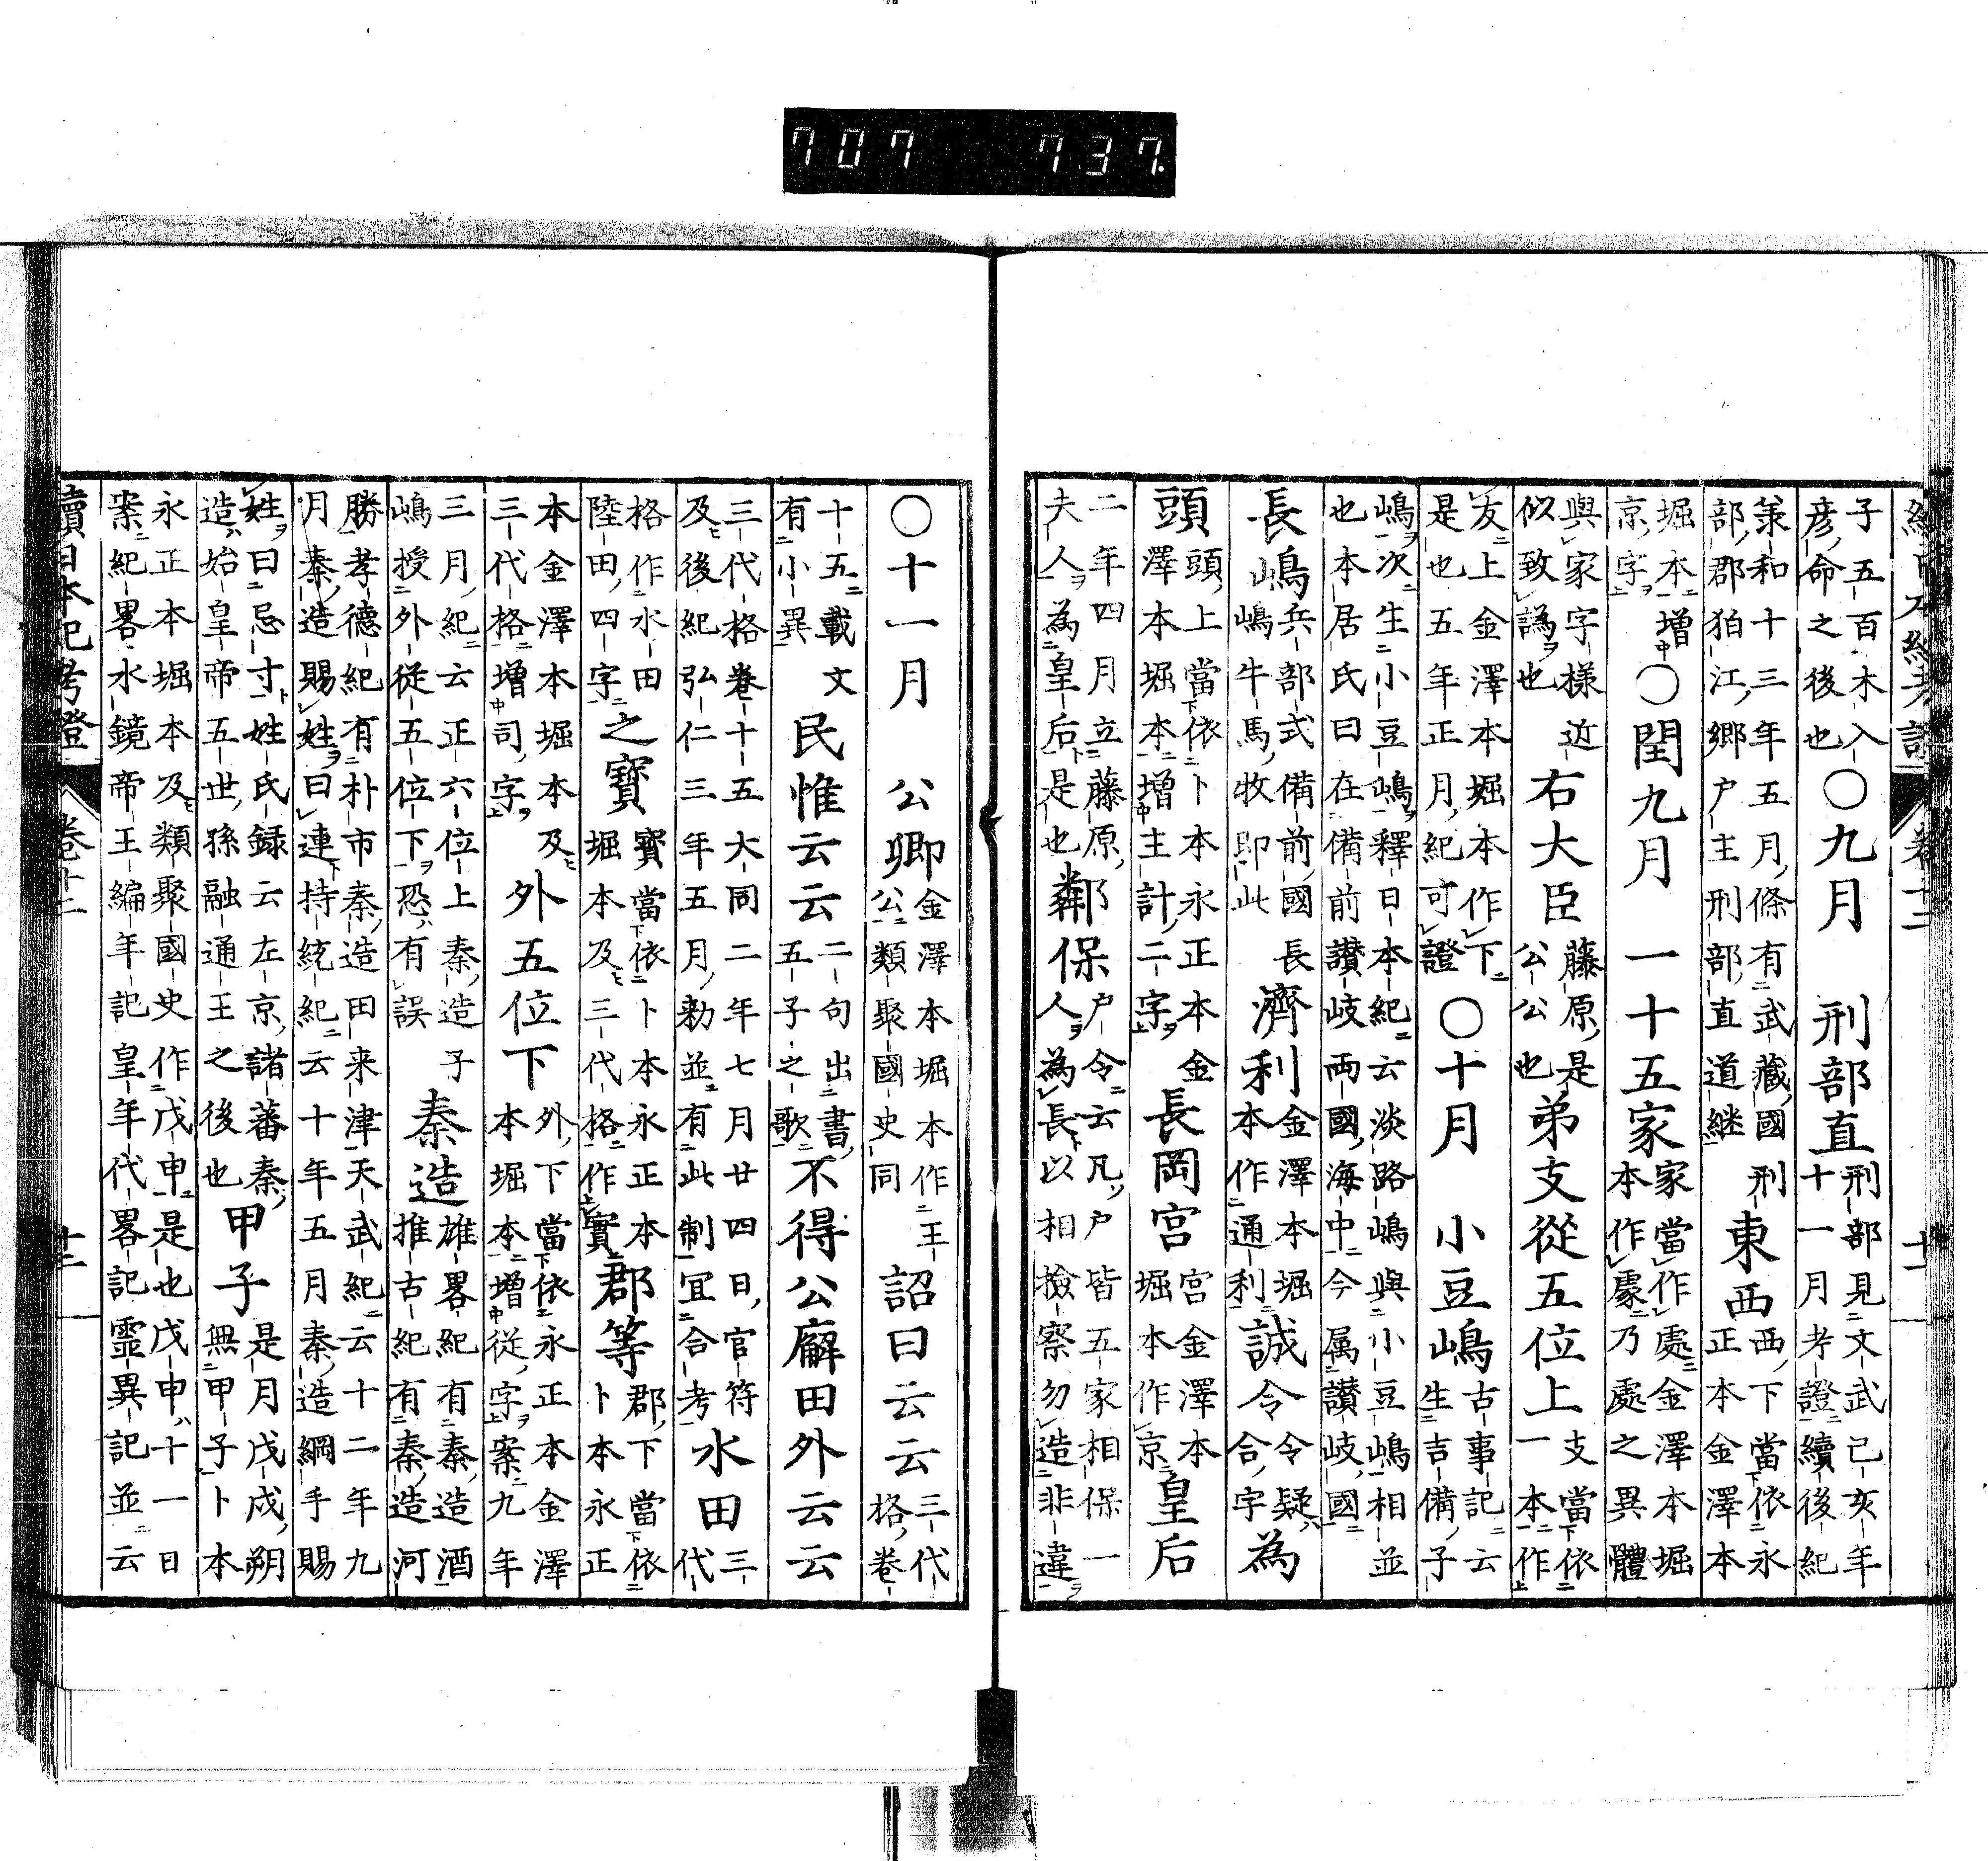 707 737.
續日本紀考證 卷十二 十一
子五百木入〇九月 刑部直刑部見文武己亥年
彥命之後也十一月考證續後紀
承和十三年五月條有武藏國刑東西西下當依永
部郡狛江鄉戶主刑部直道継正本金澤本
堀本增〇閏九月 一十五家家當作處金澤本堀
京字本作䖏乃處之異體
與家字樣近右大臣藤原是弟支從五位上支當依
似致譌也公公也一本作
友上金澤本堀本作下〇十月 小豆嶋古事記云
是也五年正月紀可證生吉備子
嶋次生小豆嶋釋日本紀云淡路嶋與小豆嶋相並
也本居氏曰在備前讃岐兩國海中今属讃岐國
長嶋兵部式備前國長濟利金澤本堀誠令令疑為
嶋牛馬牧即此本作通利合字
頭頭上當依卜本永正本金長岡宮宮金澤本皇后
澤本堀本增主計二字堀本作京
二年四月立藤原鄰保戶令云凡戶皆五家相保一
夫人為皇后是也人為長以相撿察勿造非違
〇十一月 公卿金澤本堀本作王詔曰云云三代
公類聚國史同格卷
十五載文民惟云云二句出書不得公廨田外云云
有小異五子之歌
三代格卷十五大同二年七月廿四日官符水田三
及後紀弘仁三年五月勅並有此制宜合考代
格作水田之寶寶當依卜本永正本郡等郡下當依
陸田四字堀本及三代格作實卜本永正
本金澤本堀本及外五位下外下當依永正本金澤
三代格增司字本堀本增從字案九年
三月紀云正六位上秦造子秦造雄畧紀有秦造酒
嶋授外從五位下恐有誤推古紀有秦造河
勝孝德紀有朴市秦造田来津天武紀云十二年九
月秦造賜姓曰連持統紀云十年五月秦造綱手賜
姓曰忌寸姓氏録云左京諸蕃秦甲子是月戊戌朔
造始皇帝五世孫融通王之後也無甲子卜本
永正本堀本及類聚國史作戊申是也戊申十一日
案紀畧水鏡帝王編年記皇年代畧記霊異記並云
續日本紀考證 卷十二 十二